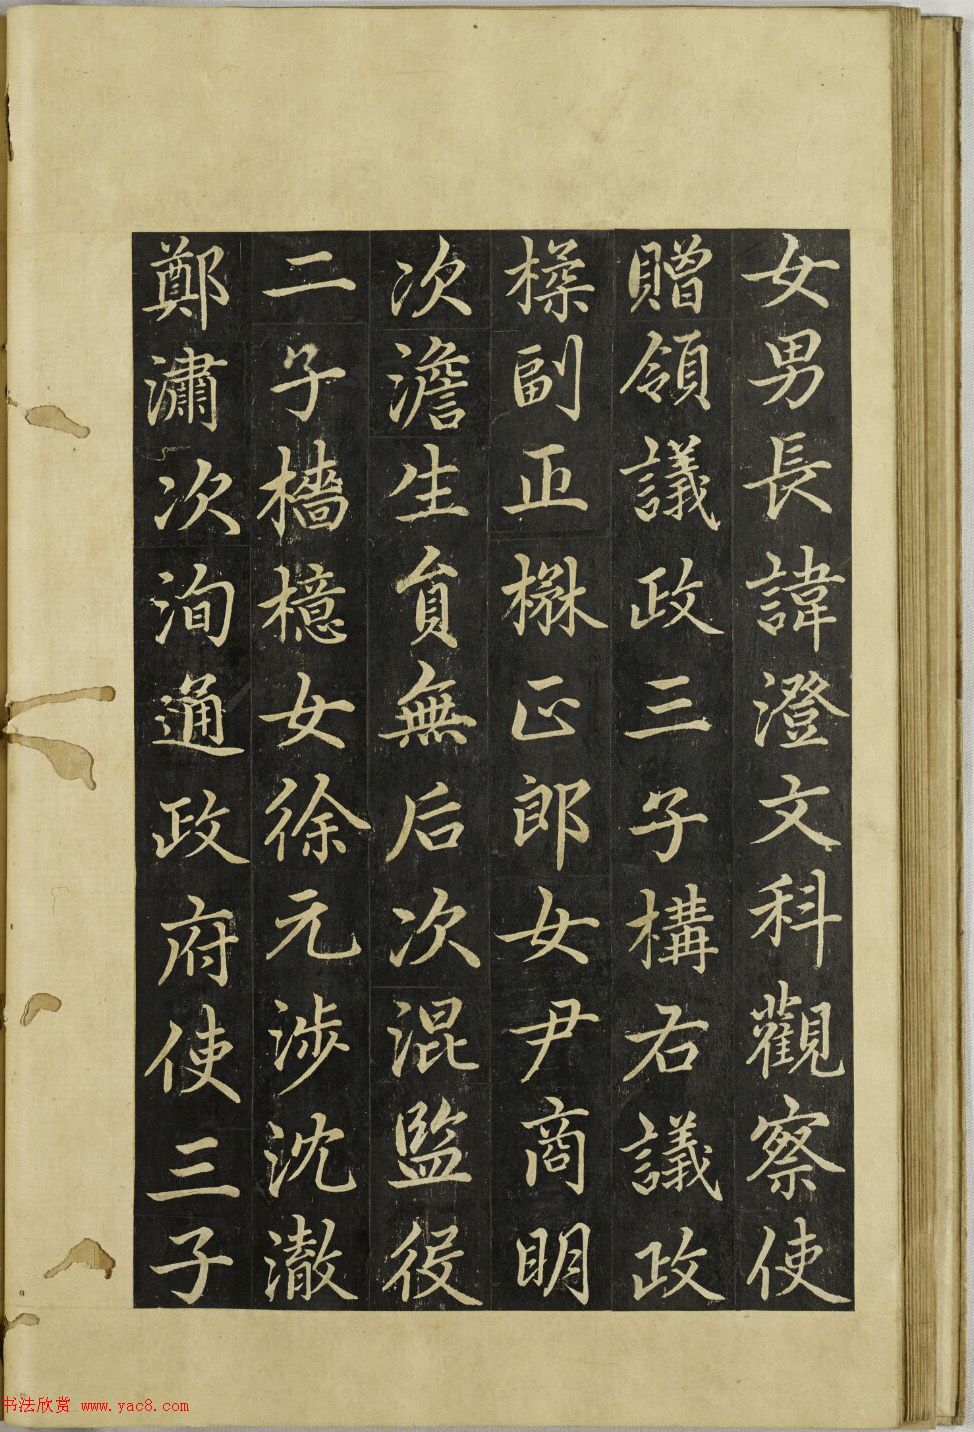 女男長諱澄文科觀察使
贈領議政三子構右議政
橾副正楙正郎女尹商明
次澹生員無后次混監役
二子檣檍女徐元涉沈澈
鄭潚次洵通政府使三子
书法欣赏 www.yac8.com